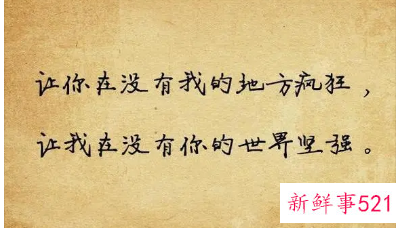 让你在没有我的地方疯狂，
让我在没有你的世界坚强。
新鲜事521